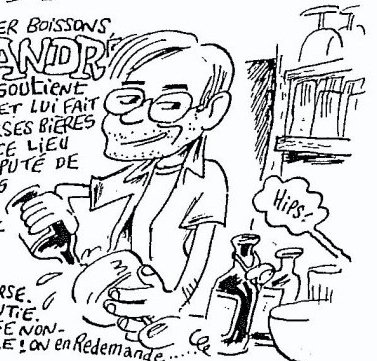 ER BOISSONS
ANDR
SOUTIENT
ET LUI FAIT
SES BIÈRES
CE LIEU
PUTÉ DE
HIPS!
RSE.
TIE.
FE NON-
LE! ON en Redemande......